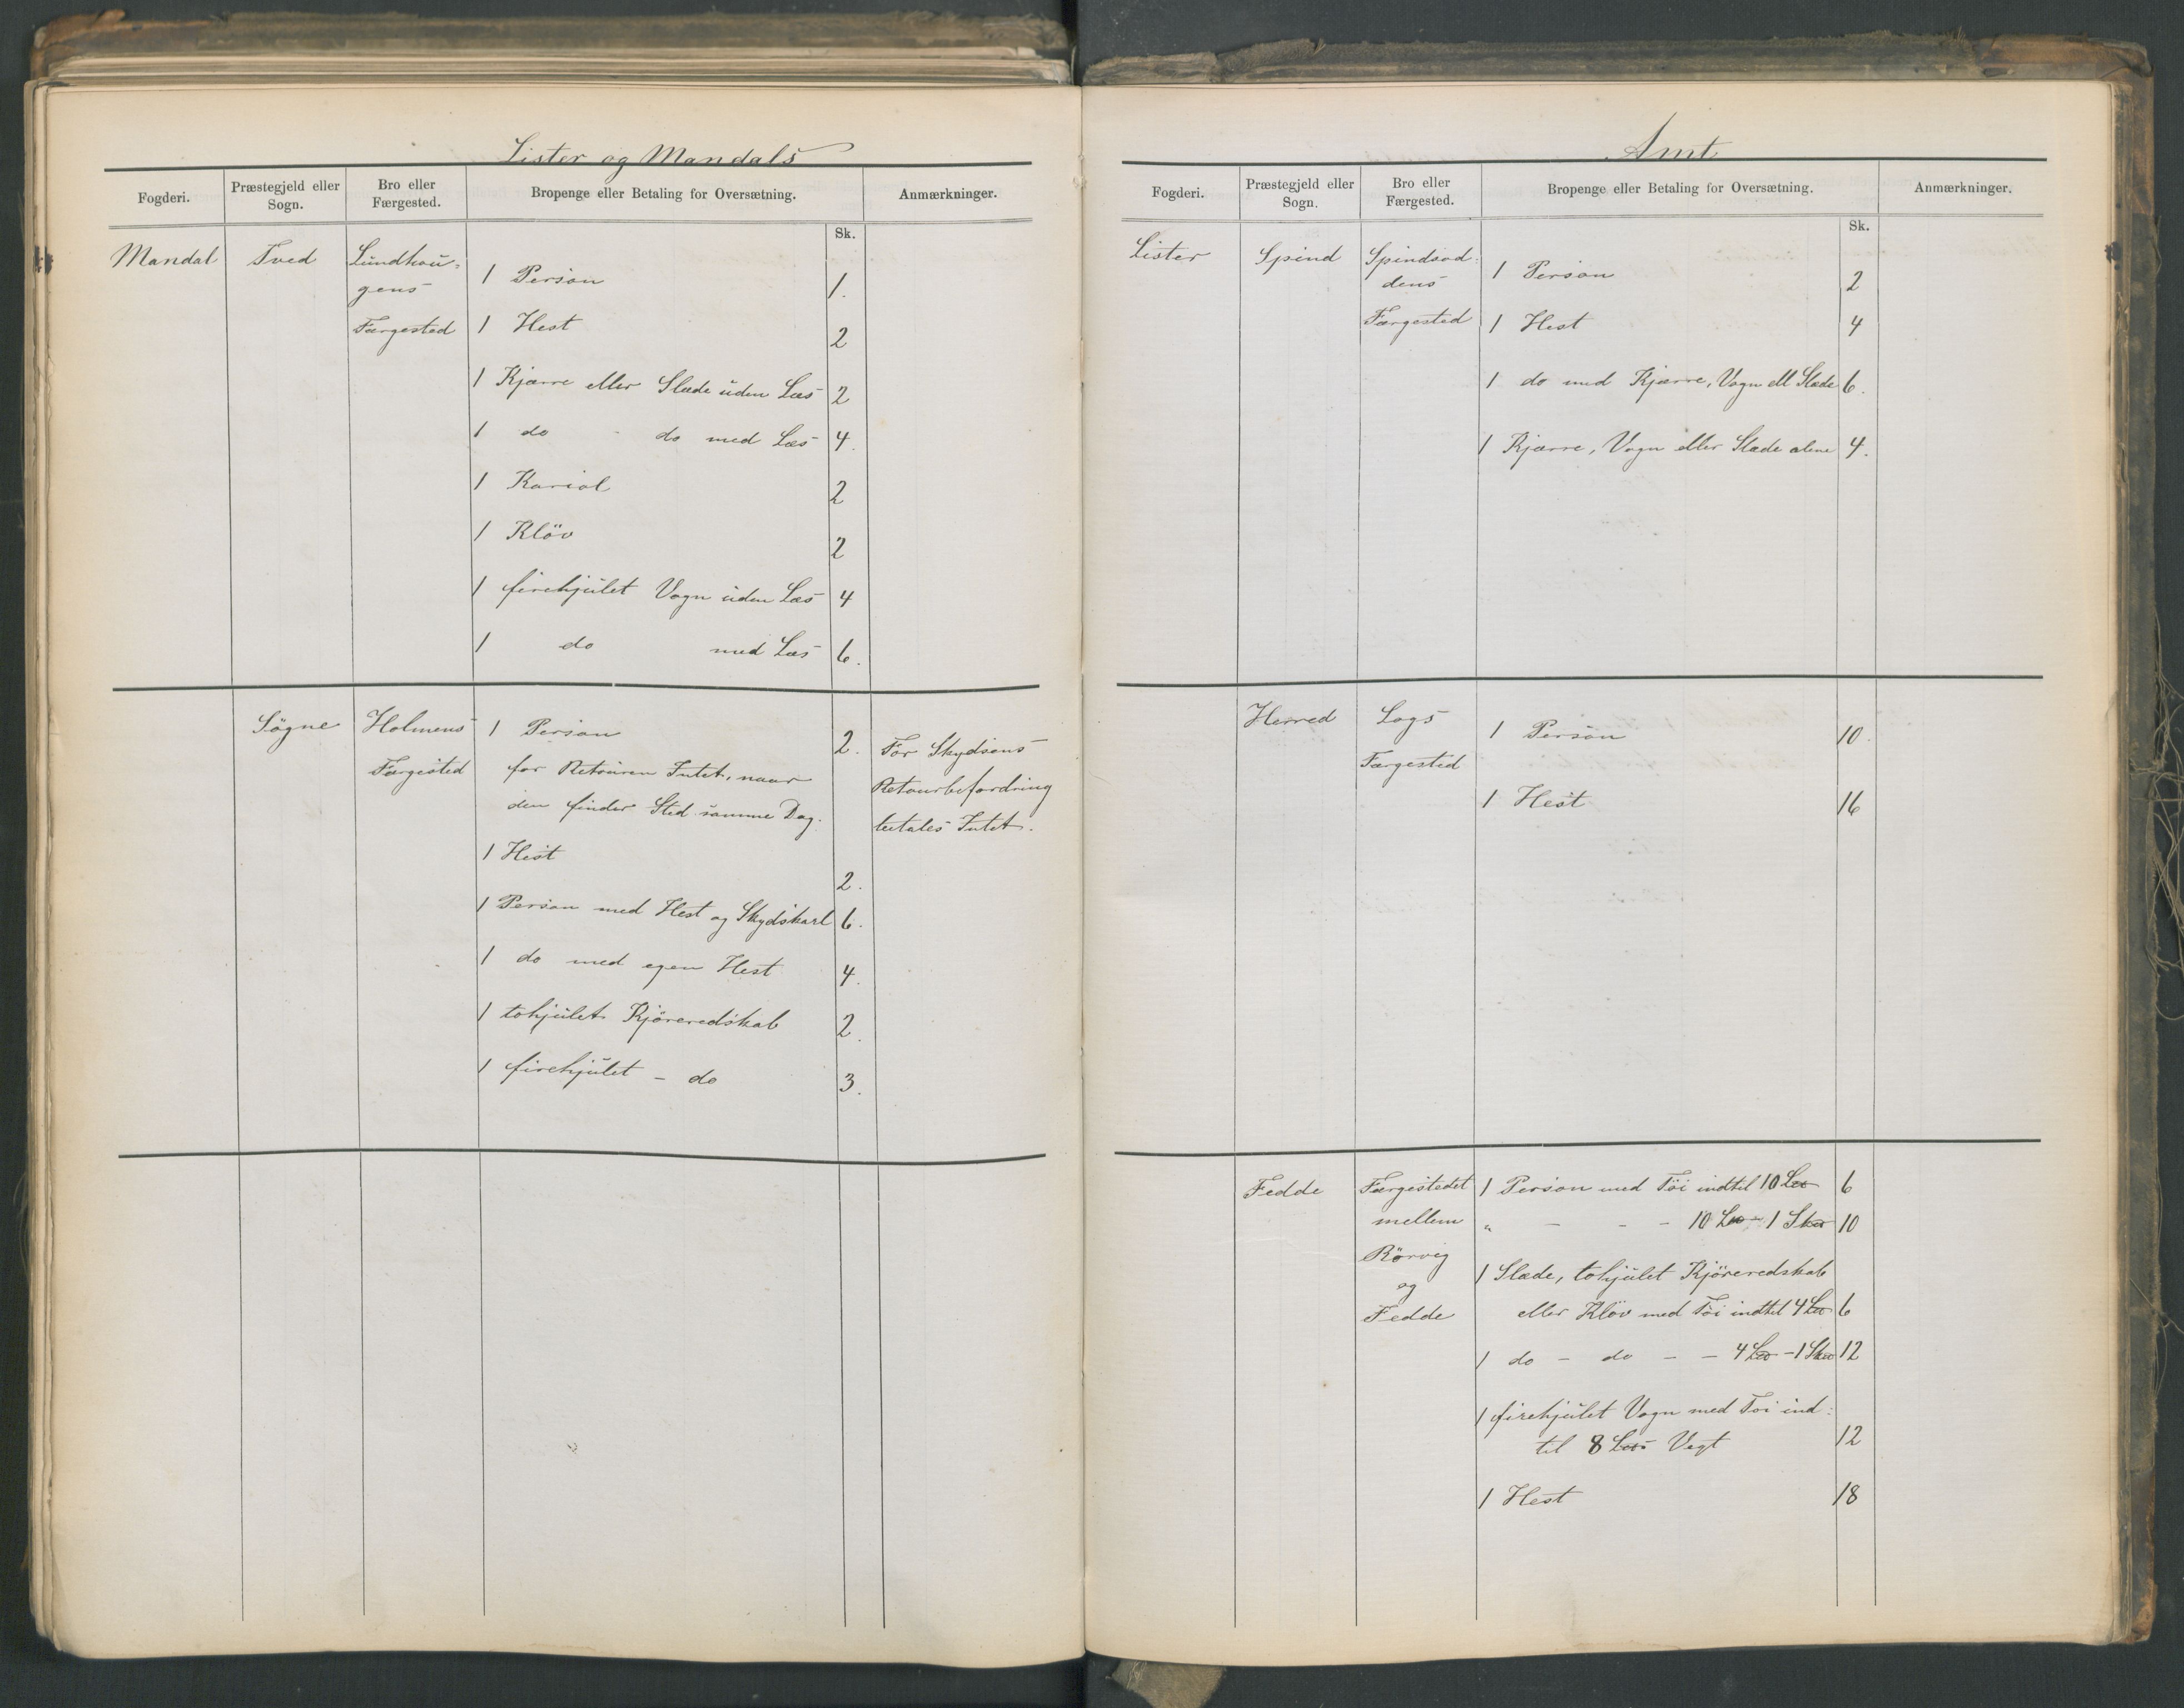 Lister og Mandals
Fogderi.
Præstegjeld eller Sogn.
Bro eller Færgested.
Bropenge eller Betaling for Oversætning.
Anmærkninger.
Sk.
Mandal
Tved
Lundhou-
gens
Færgested
1 Person 1.
1 Hest 2
1 Kjærre eller Slæde uden Læs 2
1 do - do med Læs 4.
1 Kariol 2
1 Kløv 2
1 firehjulet Vogn uden Læs 4
1 do med Læs 6.
Søgne
Holmens
Færgested
1 Person 2.
for Retouren Intet, naar
den finder Sted samme Dag.
1 Hest 2.
1 Person med Hest og Skydskarl 6.
1 do med egen Hest 4.
1 tohjulet Kjøreredskab 2.
1 firehjulet - do 3.
For Skydsens
Retourbefordring
betales Intet.
Amt
Fogderi.
Præstegjeld eller Sogn.
Bro eller Færgested.
Bropenge eller Betaling for Oversætning.
Anmærkninger.
Sk.
Lister
Spind
Spindsod-
dens
Færgested
1 Person 2
1 Hest 4
1 do med Kjærre, Vogn ell Slæde 6.
1 Kjærre, Vogn eller Slæde alene 4.
Herred
Logs
Færgested
1 Person 10.
1 Hest 16
Fedde
Færgestedet
mellem
Rørvig
og
Fedde
1 Person med Tøi indtil 10 6
" - - - 10 - 1 10
1 Slæde, tohjulet Kjøreredskab
eller Kløv med Tøi indtil 4 6
1 do - do - - 4 - 1 12
1 firehjulet Vogn med Tøi ind-
til 8 Vegt 12
1 Hest 18